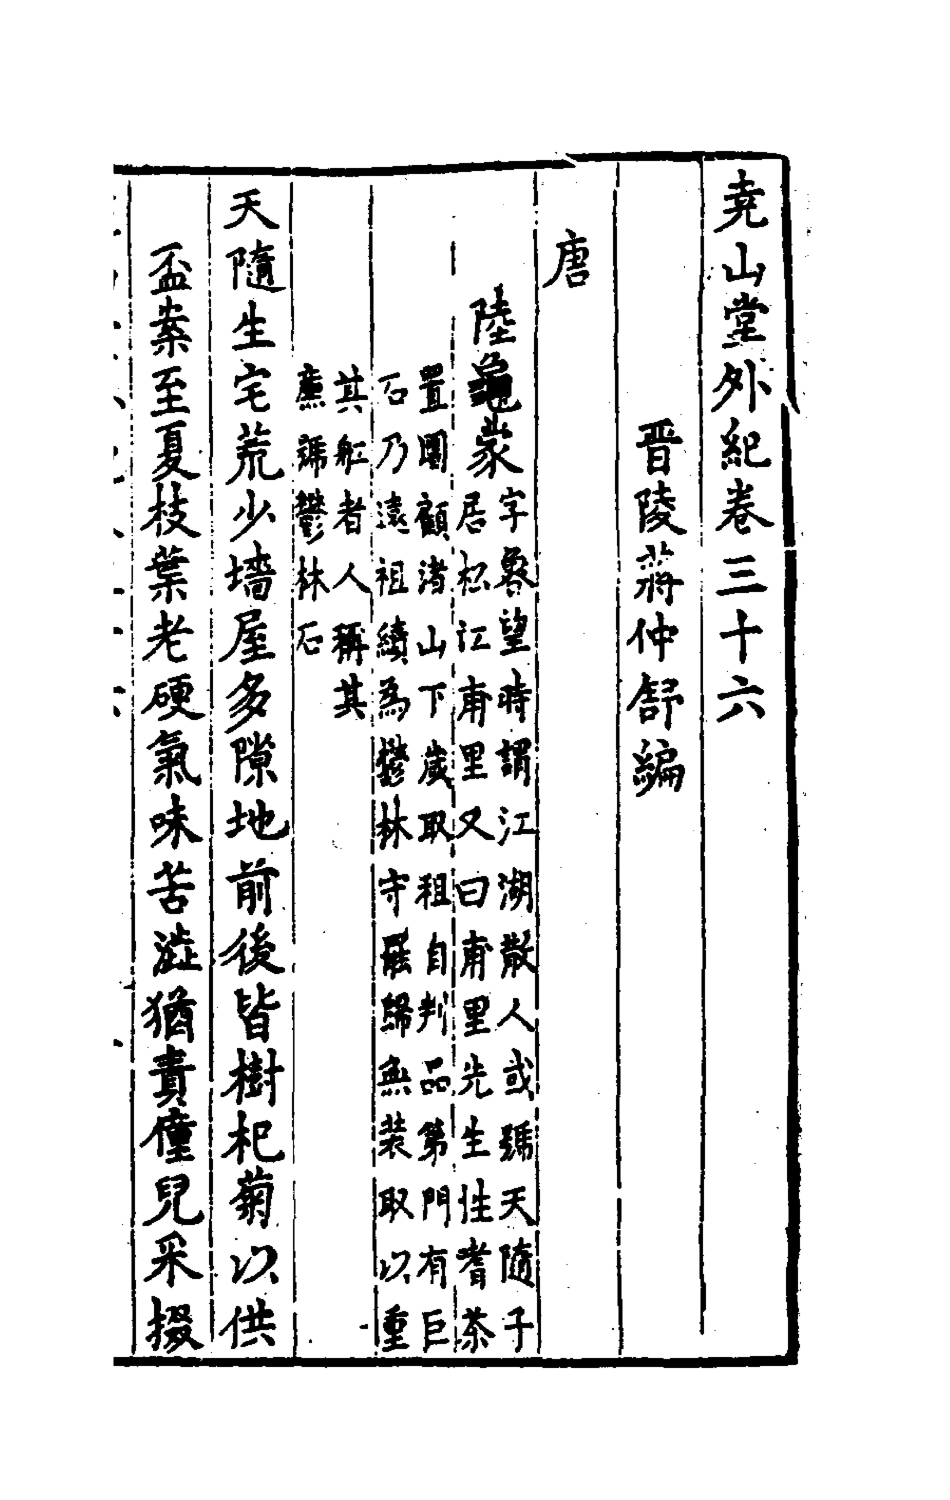 堯山堂外紀卷三十六
晉陵蔣仲舒編
唐
陸龜蒙
字魯望時謂江湖散人或號天隨子
居松江甫里又曰甫里先生性耆茶
置園顧渚山下歲取租自判品第門有巨
石乃遠祖績為鬱林守罷歸無装取以重
其舡者人稱其
亷號鬱林石
天隨生宅荒少墻屋多隙地前後皆樹杞菊以供
盃案至夏枝葉老硬氣味苦澁猶責僮兒采掇